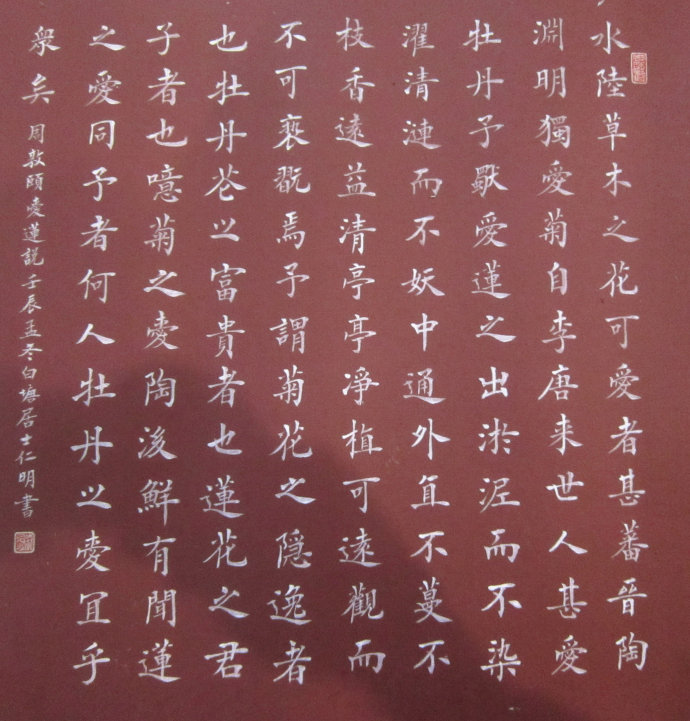 水陸草木之花可愛者甚蕃晉陶
淵明獨愛菊自李唐来世人甚愛
牡丹予獸愛蓮之出淤泥而不染
濯清漣而不妖中通外直不蔓不
枝香遠益清亭亭凈植可遠觀而
不可褻翫焉予謂菊花之隠逸者
也牡丹花之富貴者也蓮花之君
子者也噫菊之愛陶後鮮有聞蓮
之愛同予者何人牡丹之愛宜乎
衆矣
周敦頤愛蓮説壬辰孟冬白塘居士仁明書